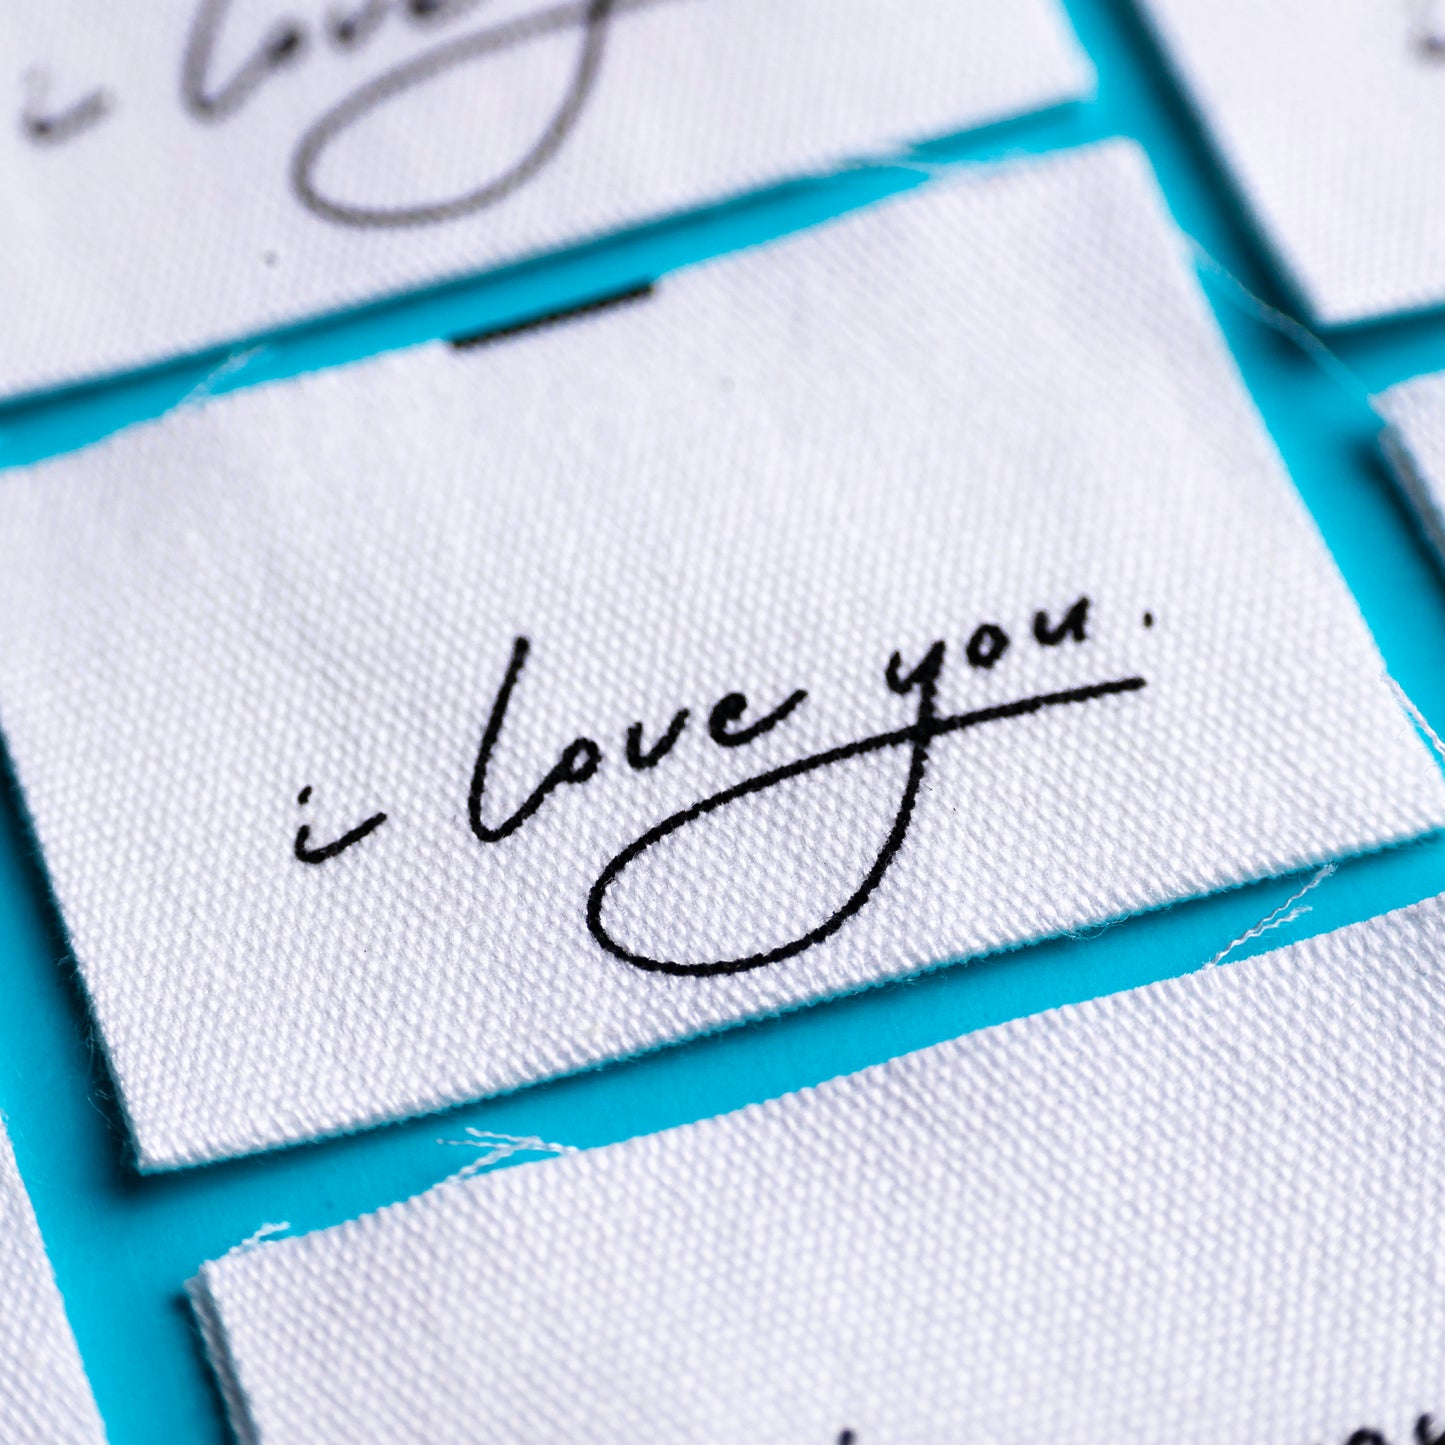 i love
i love you.